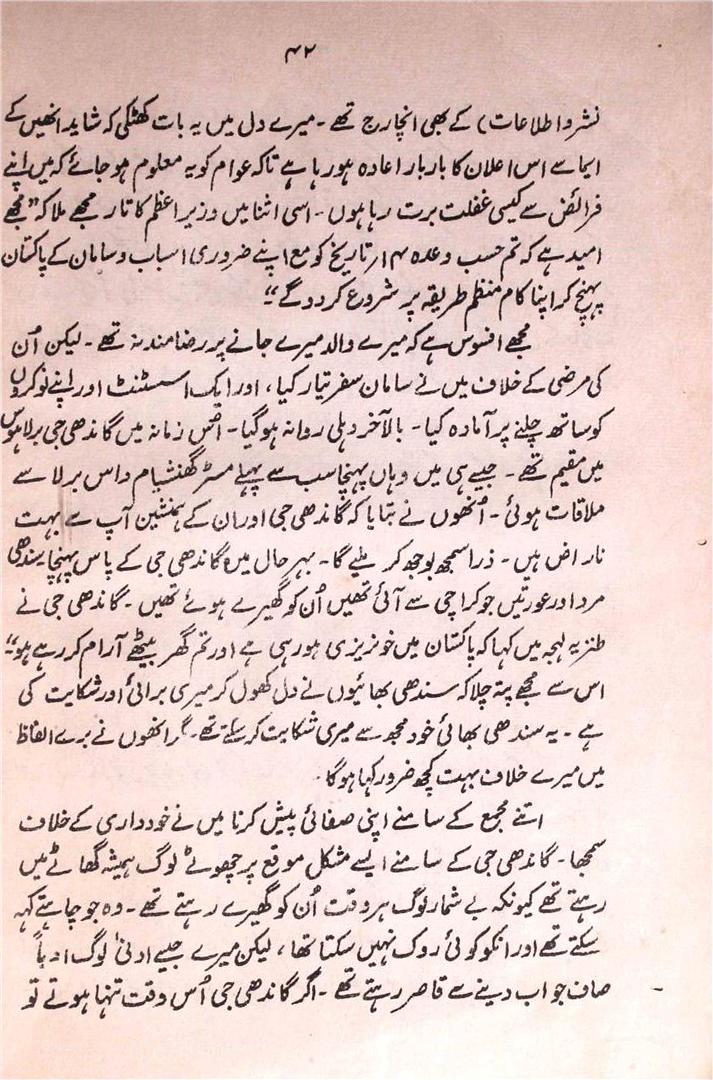 ۴۲
نشر و اطلاعات) کے بھی انچارج تھے ۔ میرے دل میں یہ بات کھٹکی کہ شاید انھیں کے
ایما سے اس اعلان کا بار بار اعادہ ہو رہا ہے تاکہ عوام کو یہ معلوم ہو جائے کہ میں اپنے
فرائض سے کیسی غفلت برت رہا ہوں ۔ اسی اثنا میں وزیر اعظم کا تار مجھے ملا کہ "مجھے
امید ہے کہ تم حسب وعدہ ۱۴ تاریخ کو مع اپنے ضروری اسباب و سامان کے پاکستان
پہنچ کر اپنا کام منظم طریقہ پر شروع کر دو گے"
مجھے افسوس ہے کہ میرے والد میرے جانے پر رضا مند نہ تھے ۔ لیکن اُن
کی مرضی کے خلاف میں نے سامان سفر تیار کیا ، اور ایک اسسٹنٹ اور اپنے نوکروں
کو ساتھ چلنے پر آمادہ کیا ۔ بالآخر دہلی روانہ ہو گیا ۔ اُس زمانہ میں گاندھی جی برلا ہوس
میں مقیم تھے ۔ جیسے ہی میں وہاں پہنچا سب سے پہلے مسٹر گھنشیام داس برلا سے
ملاقات ہوئی ۔ اُنھوں نے بتایا کہ گاندھی جی اور ان کے ہمنشین آپ سے بہت
ناراض ہیں ۔ ذرا سمجھ بوجھ کر ملیے گا ۔ بہر حال میں گاندھی جی کے پاس پہنچا سندھی
مرد اور عورتیں جو کراچی سے آئی تھیں اُن کو گھیرے ہوئے تھیں ۔ گاندھی جی نے
طنزیہ لہجہ میں کہا کہ پاکستان میں خونریزی ہو رہی ہے اور تم گھر بیٹھے آرام کر رہے ہو"
اس سے مجھے پتہ چلا کہ سندھی بھائیوں نے دل کھول کر میری برائی اور شکایت کی
ہے ۔ یہ سندھی بھائی خود مجھ سے میری شکایت کر سکتے تھے ۔ مگر انھوں نے برے الفاظ
میں میرے خلاف بہت کچھ ضرور کہا ہوگا ۔
اتنے مجمع کے سامنے اپنی صفائی پیش کرنا میں نے خودداری کے خلاف
سمجھا ۔ گاندھی جی کے سامنے ایسے مشکل موقع پر چھوٹے لوگ ہمیشہ گھاٹے میں
رہتے تھے کیونکہ بے شمار لوگ ہر وقت اُن کو گھیرے رہتے تھے ۔ وہ جو چاہتے کہہ
سکتے تھے اور انکو کوئی روک نہیں سکتا تھا ، لیکن میرے جیسے ادنیٰ لوگ ادباً
صاف جواب دینے سے قاصر رہتے تھے ۔ اگر گاندھی جی اُس وقت تنہا ہوتے تو